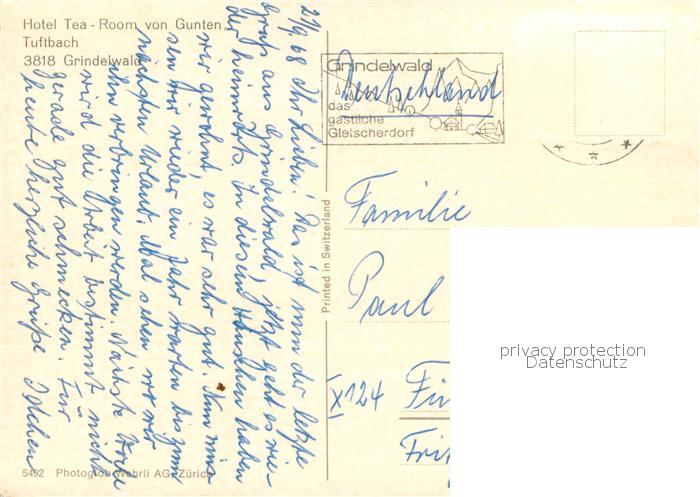 Hotel Tea-Room von Gunten,
Tuftbach
3818 Grindelwald
21/9.68 Ihr Lieben! Das ist nun der letzte
Gruß aus Grindelwald, jetzt geht es wie-
der heimwärts. In diesem Häuschen haben
wir gewohnt, es war sehr gut. Nun müs
sen wir wieder ein Jahr warten bis zum
nächsten Urlaub. Mal sehen wo wir
ihn verbringen werden. Nächste Woche
wird die Arbeit bestimmt nicht
gerade gut schmecken. Für
heute herzliche Grüße
5492 Photoglob-Wehrli AG, Zürich
Printed in Switzerland
Grindelwald
das
gastliche
Gletscherdorf
Deutschland
Familie
Paul
X124
privacy protection
Datenschutz